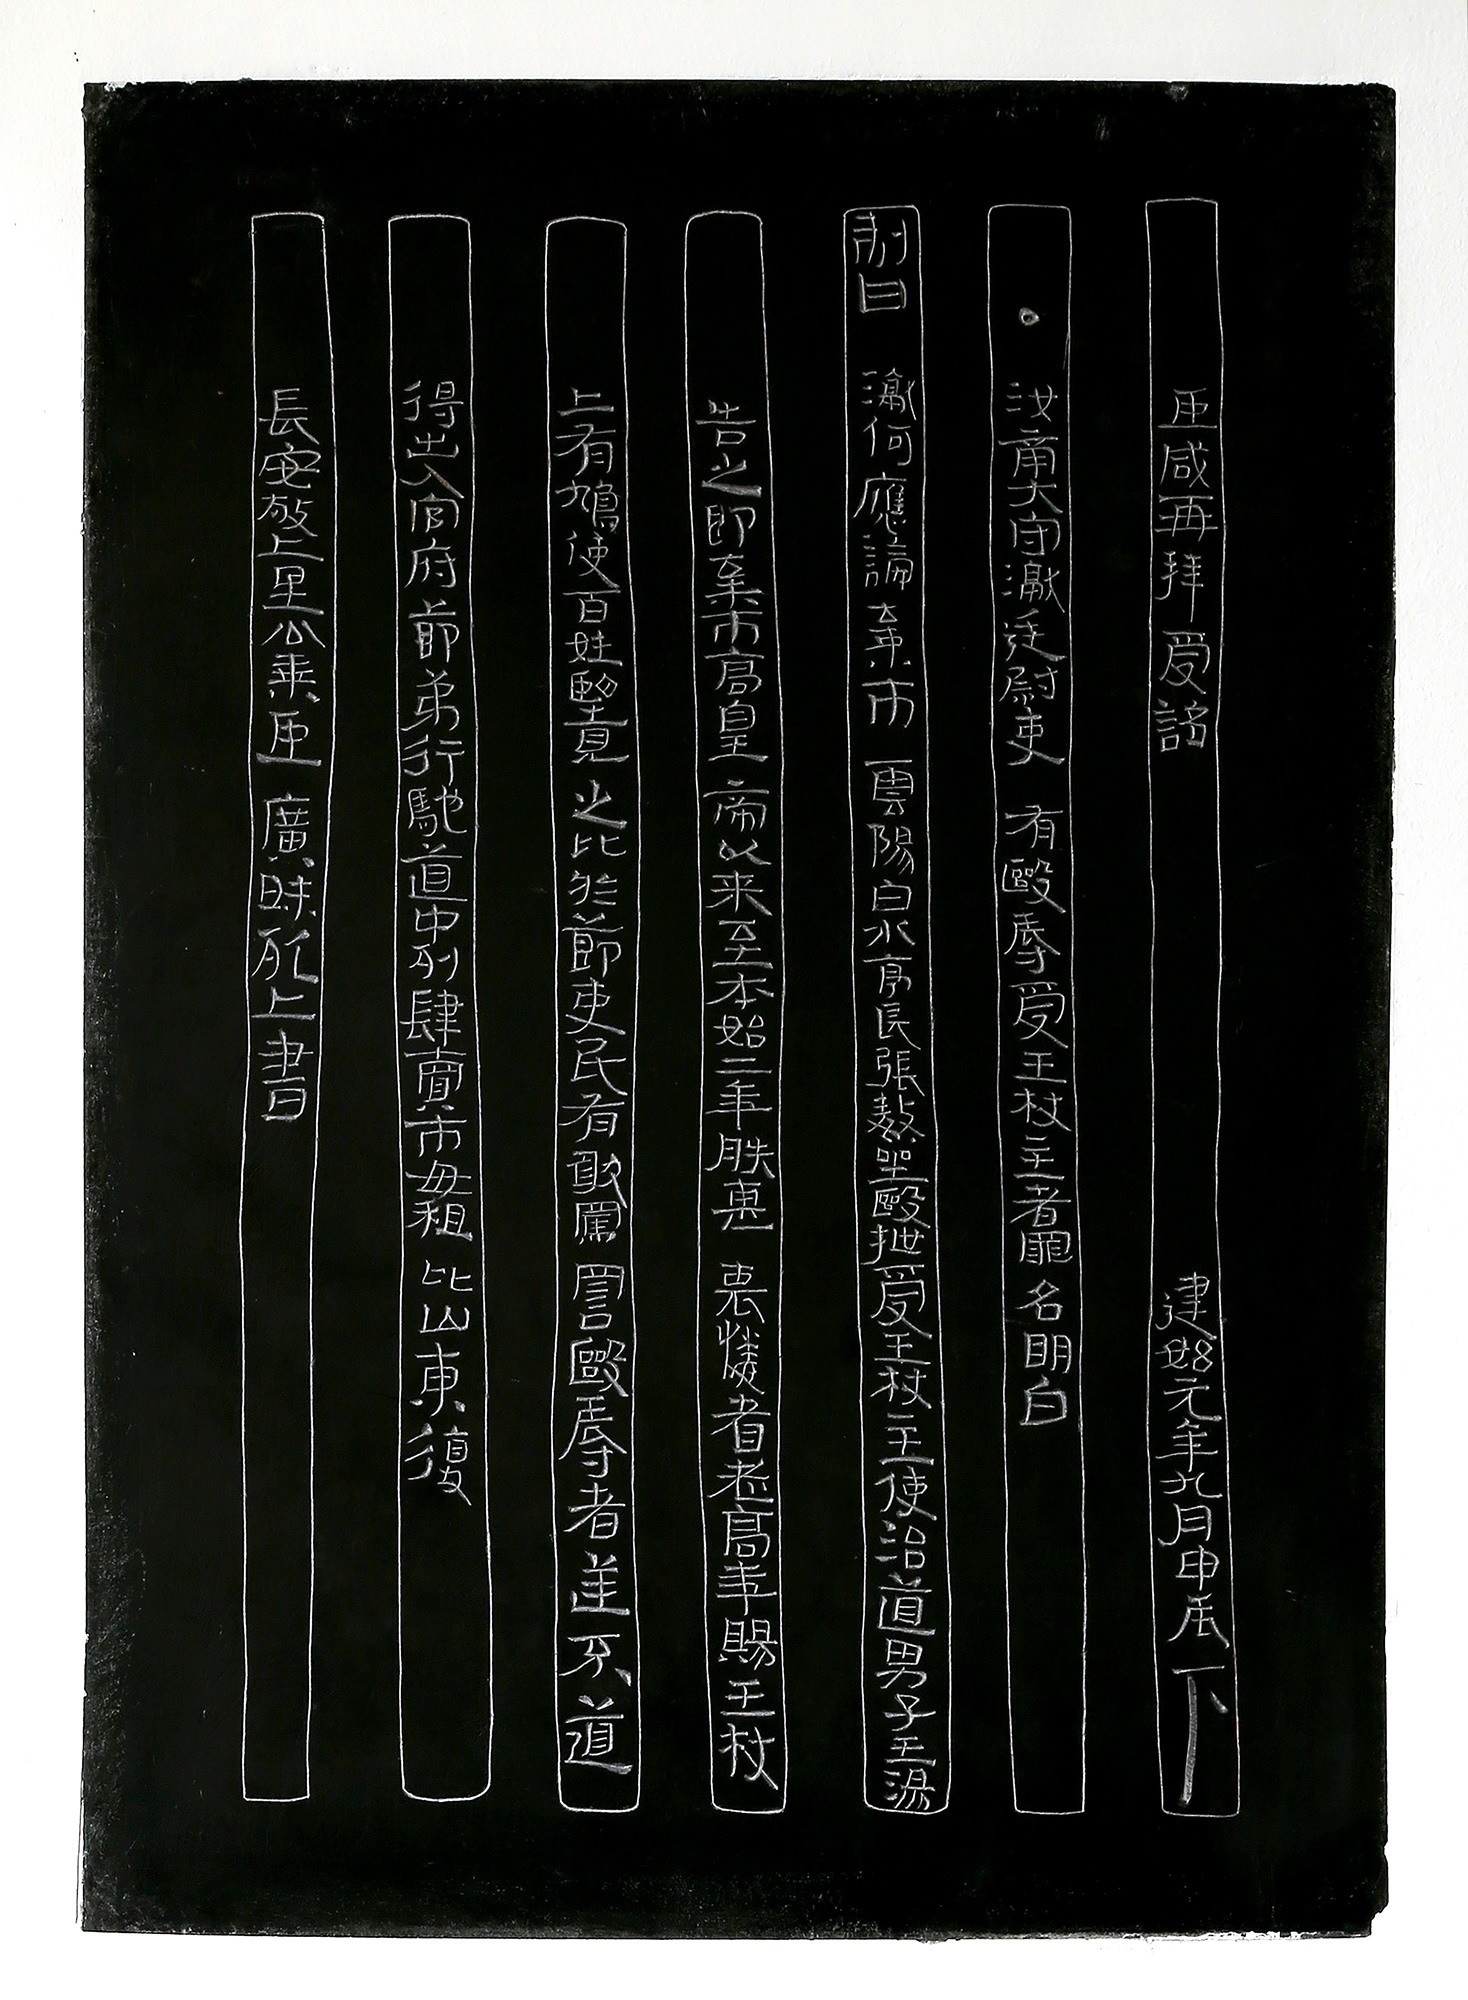 臣咸再拜受詔 建始元年九月甲辰下
·汝南大守讞廷尉吏有毆辱受王杖主者罪名明白
制曰讞何應論棄市雲陽白水亭長張敖坐毆抴受王杖主使治道男子王湯
告之即棄市高皇帝以来至本始二年朕甚哀憐耆老高年賜王杖
上有鳩使百姓望見之比於節吏民有敢罵詈毆辱者逆不道
得出入官府節第行馳道中列肆賈市毋租比山東復
長安敬上里公乘臣廣昧死上書